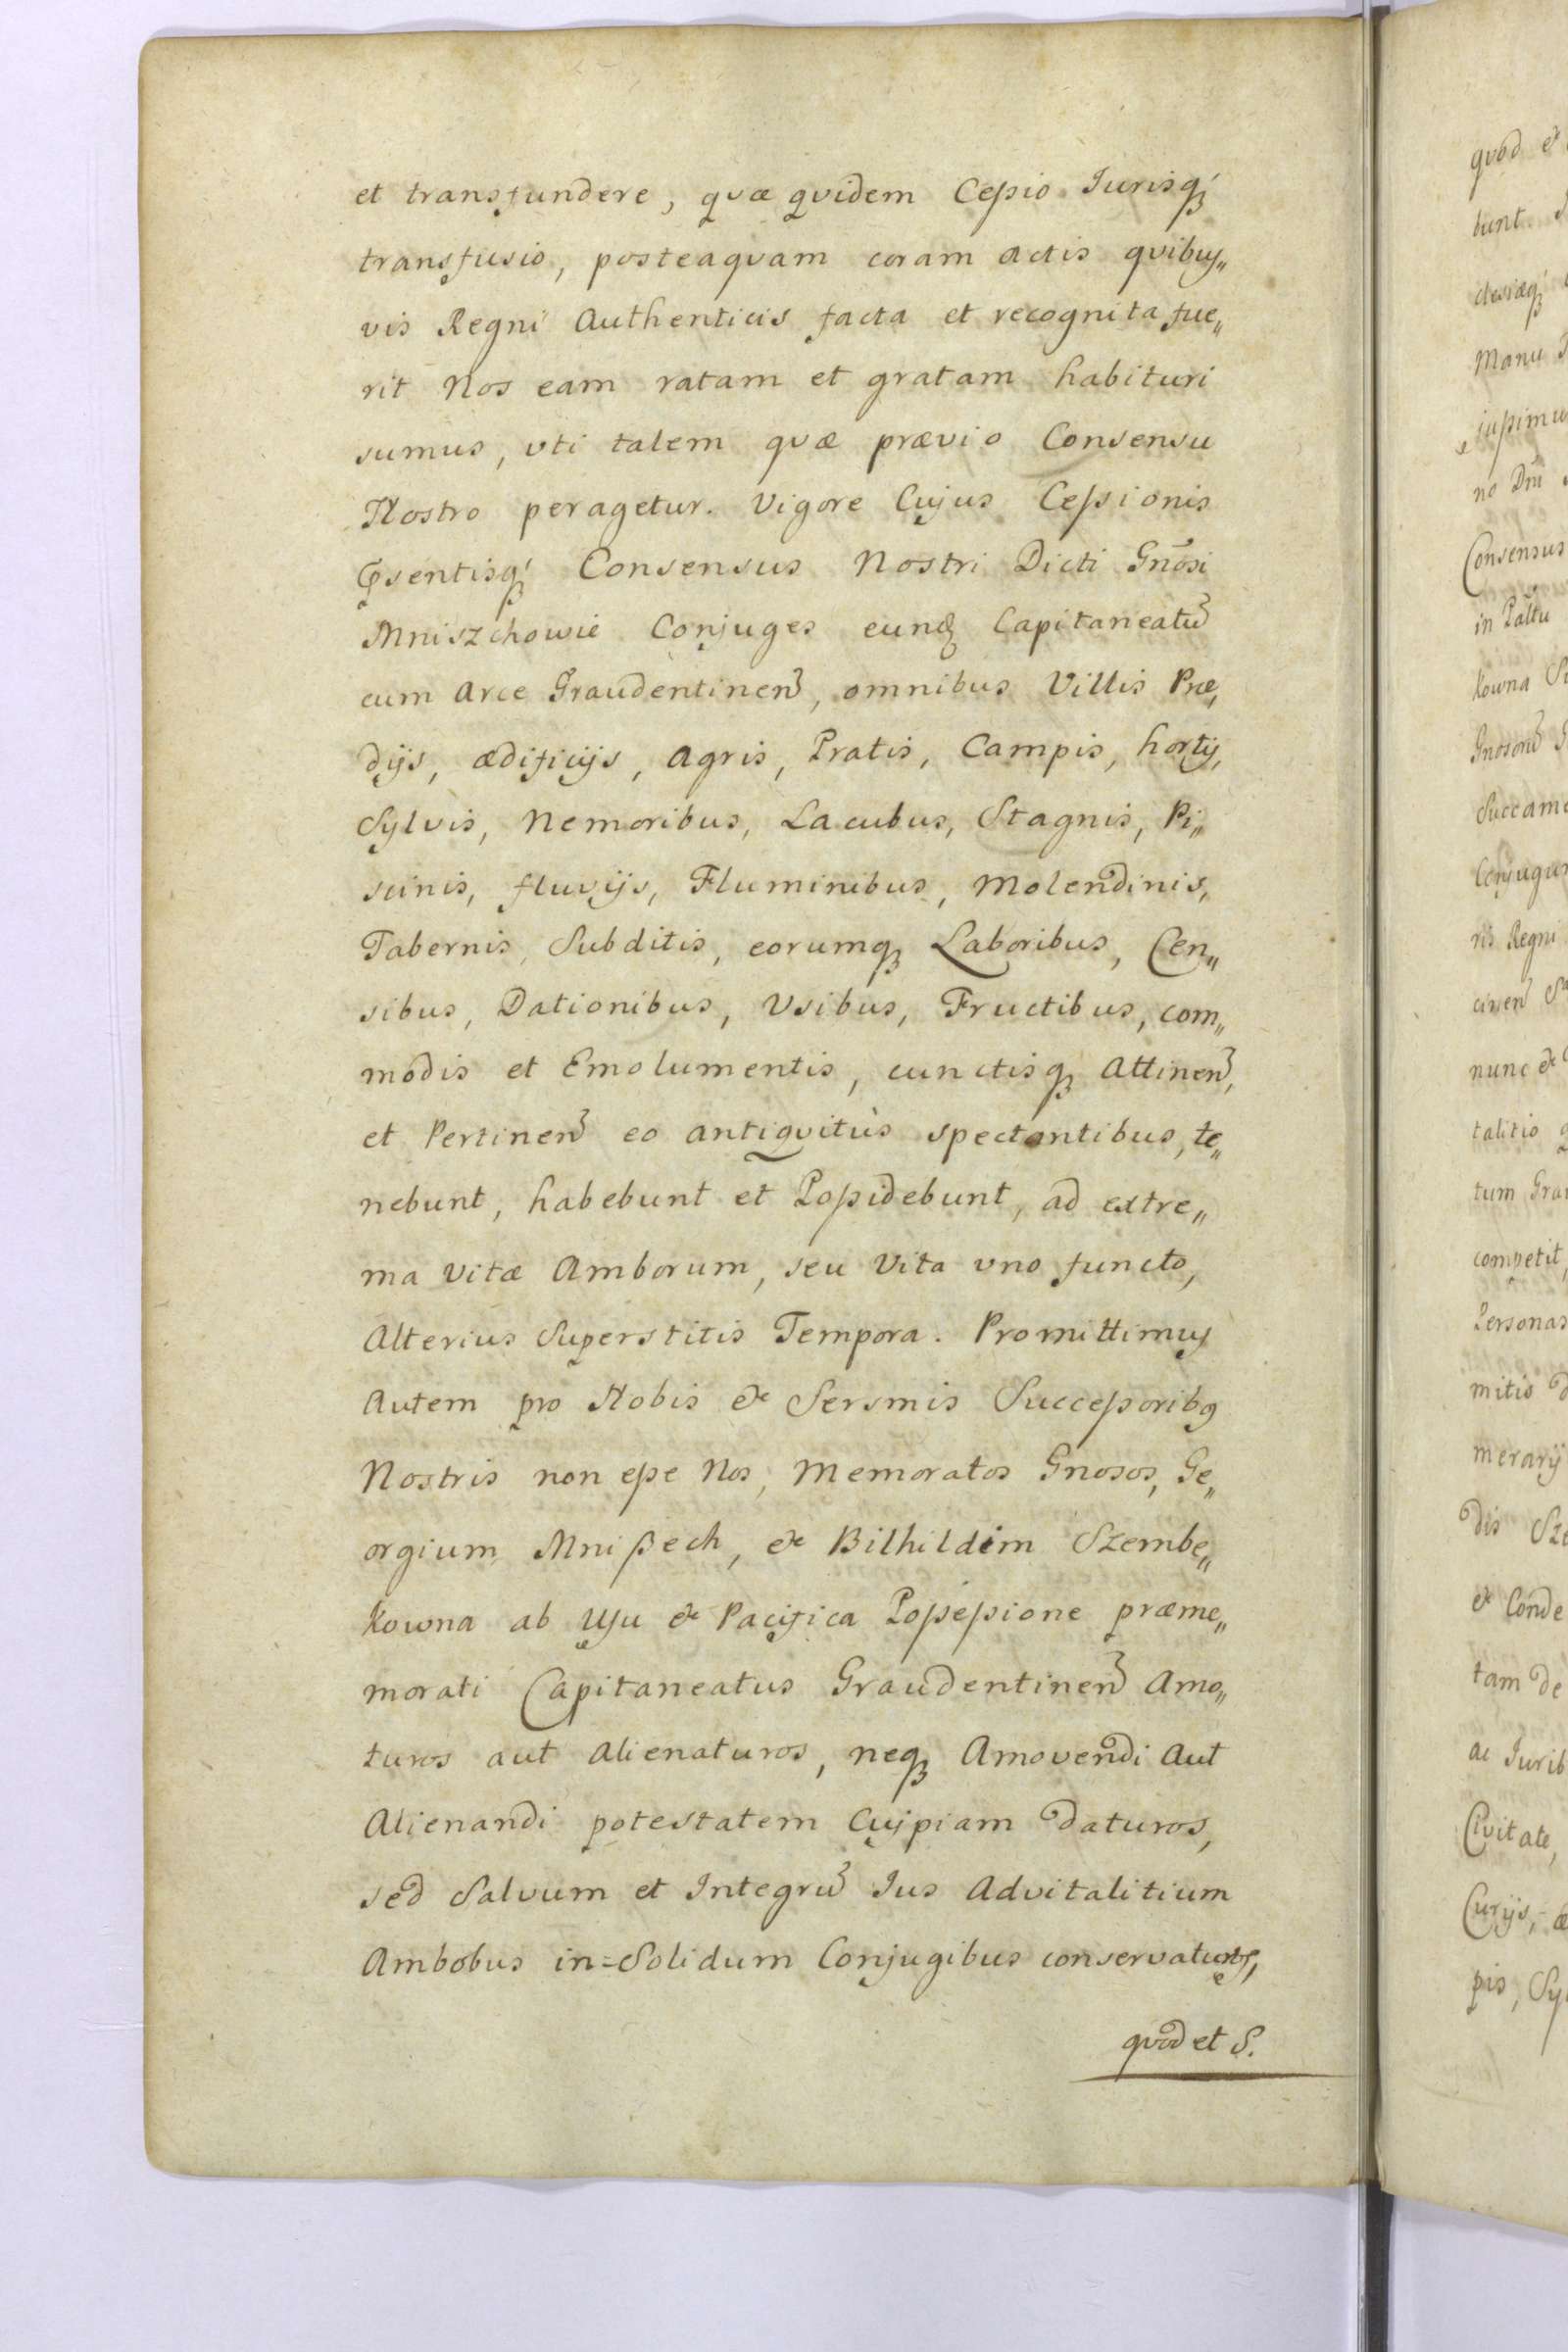 et transfundere, quæ quidem Cessio Jurisq́
transfusio, posteaquam coram actis quibus„
vis Regni Authenticis facta et recognita fue„
rit Nos eam ratam et gratam habituri
sumus, uti talem quæ prævio Consensu
Nostro peragetur. Vigore Cujus Cessionis
Psentisq́ Consensus Nostri Dicti Gnōsi
Mniszchowie Conjuges eundq Capitaneatū
cum Arce Graudentinen̄, omnibus Villis Præ„
dijs, ædificijs, Agris, Pratis, Campis, hortis,
Sylvis, Nemoribus, Lacubus, Stagnis, Pi„
scinis, fluvijs, Fluminibus, Molendinis,
Tabernis, Subditis, eorumq Laboribus, Cen„
sibus, Dationibus, Usibus, Fructibus, com„
modis et Emolumentis, cunctisq Attinen̄,
et Pertinen̄ eo antiquitùs spectantibus, te„
nebunt, habebunt et Possidebunt, ad extre„
ma vitæ Amborum, seu Vita uno functo,
Alterius Superstitis Tempora. Promittimus
Autem pro Nobis & Sersmis Successoribq
Nostris non esse Nos, Memoratos Gnosos, Ge„
orgium Mnißech, & Bilhildim Szembe„
kowna ab Usu & Pacifica Possessione præme„
morati Capitaneatus Graudentinen̄ Amo„
turos aut Alienaturos, neq Amovendi Aut
Alienandi potestatem Cuipiam daturos,
sed Salvum et Integrū Ius Advitalitium
Ambobus in=Solidum Conjugibus conservaturos,
quod et S.
quod et
bunt
clesiæq́
Manu
jussimus
no Dm̄
Consensus
in Palłu
kowna
Gnosorū
Succame
Conjugum
ris Regni
cinen̄
nunc &
talitio
tum Grau
competit,
Personas
mitio
merarij
dis Sze
& Conde
tam de
ac Jurib
Civitate,
Curijs,
pis, Sy